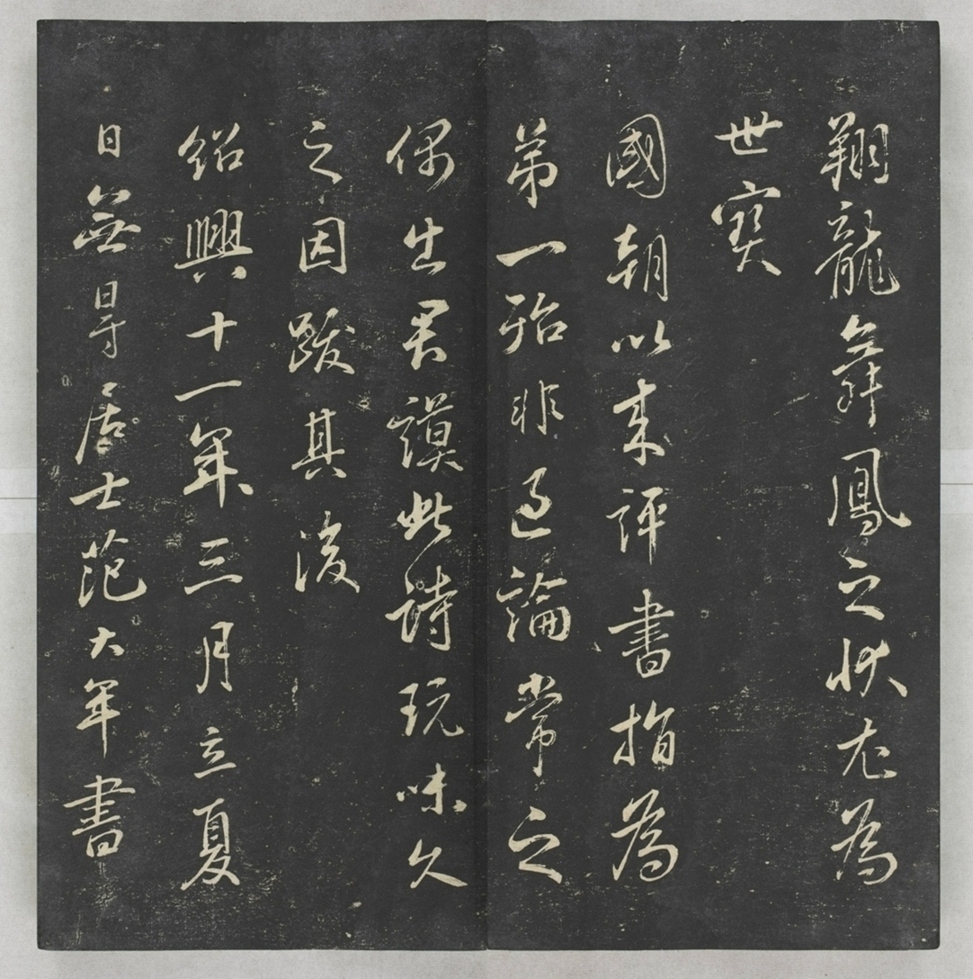 翔龍舞鳳之狀尤為
世寶
國朝以來評書指為
第一殆非過論常之
偶出君謨此詩玩味久
之因跋其後
紹興十一年三月立夏
日無㝵居士范大年書